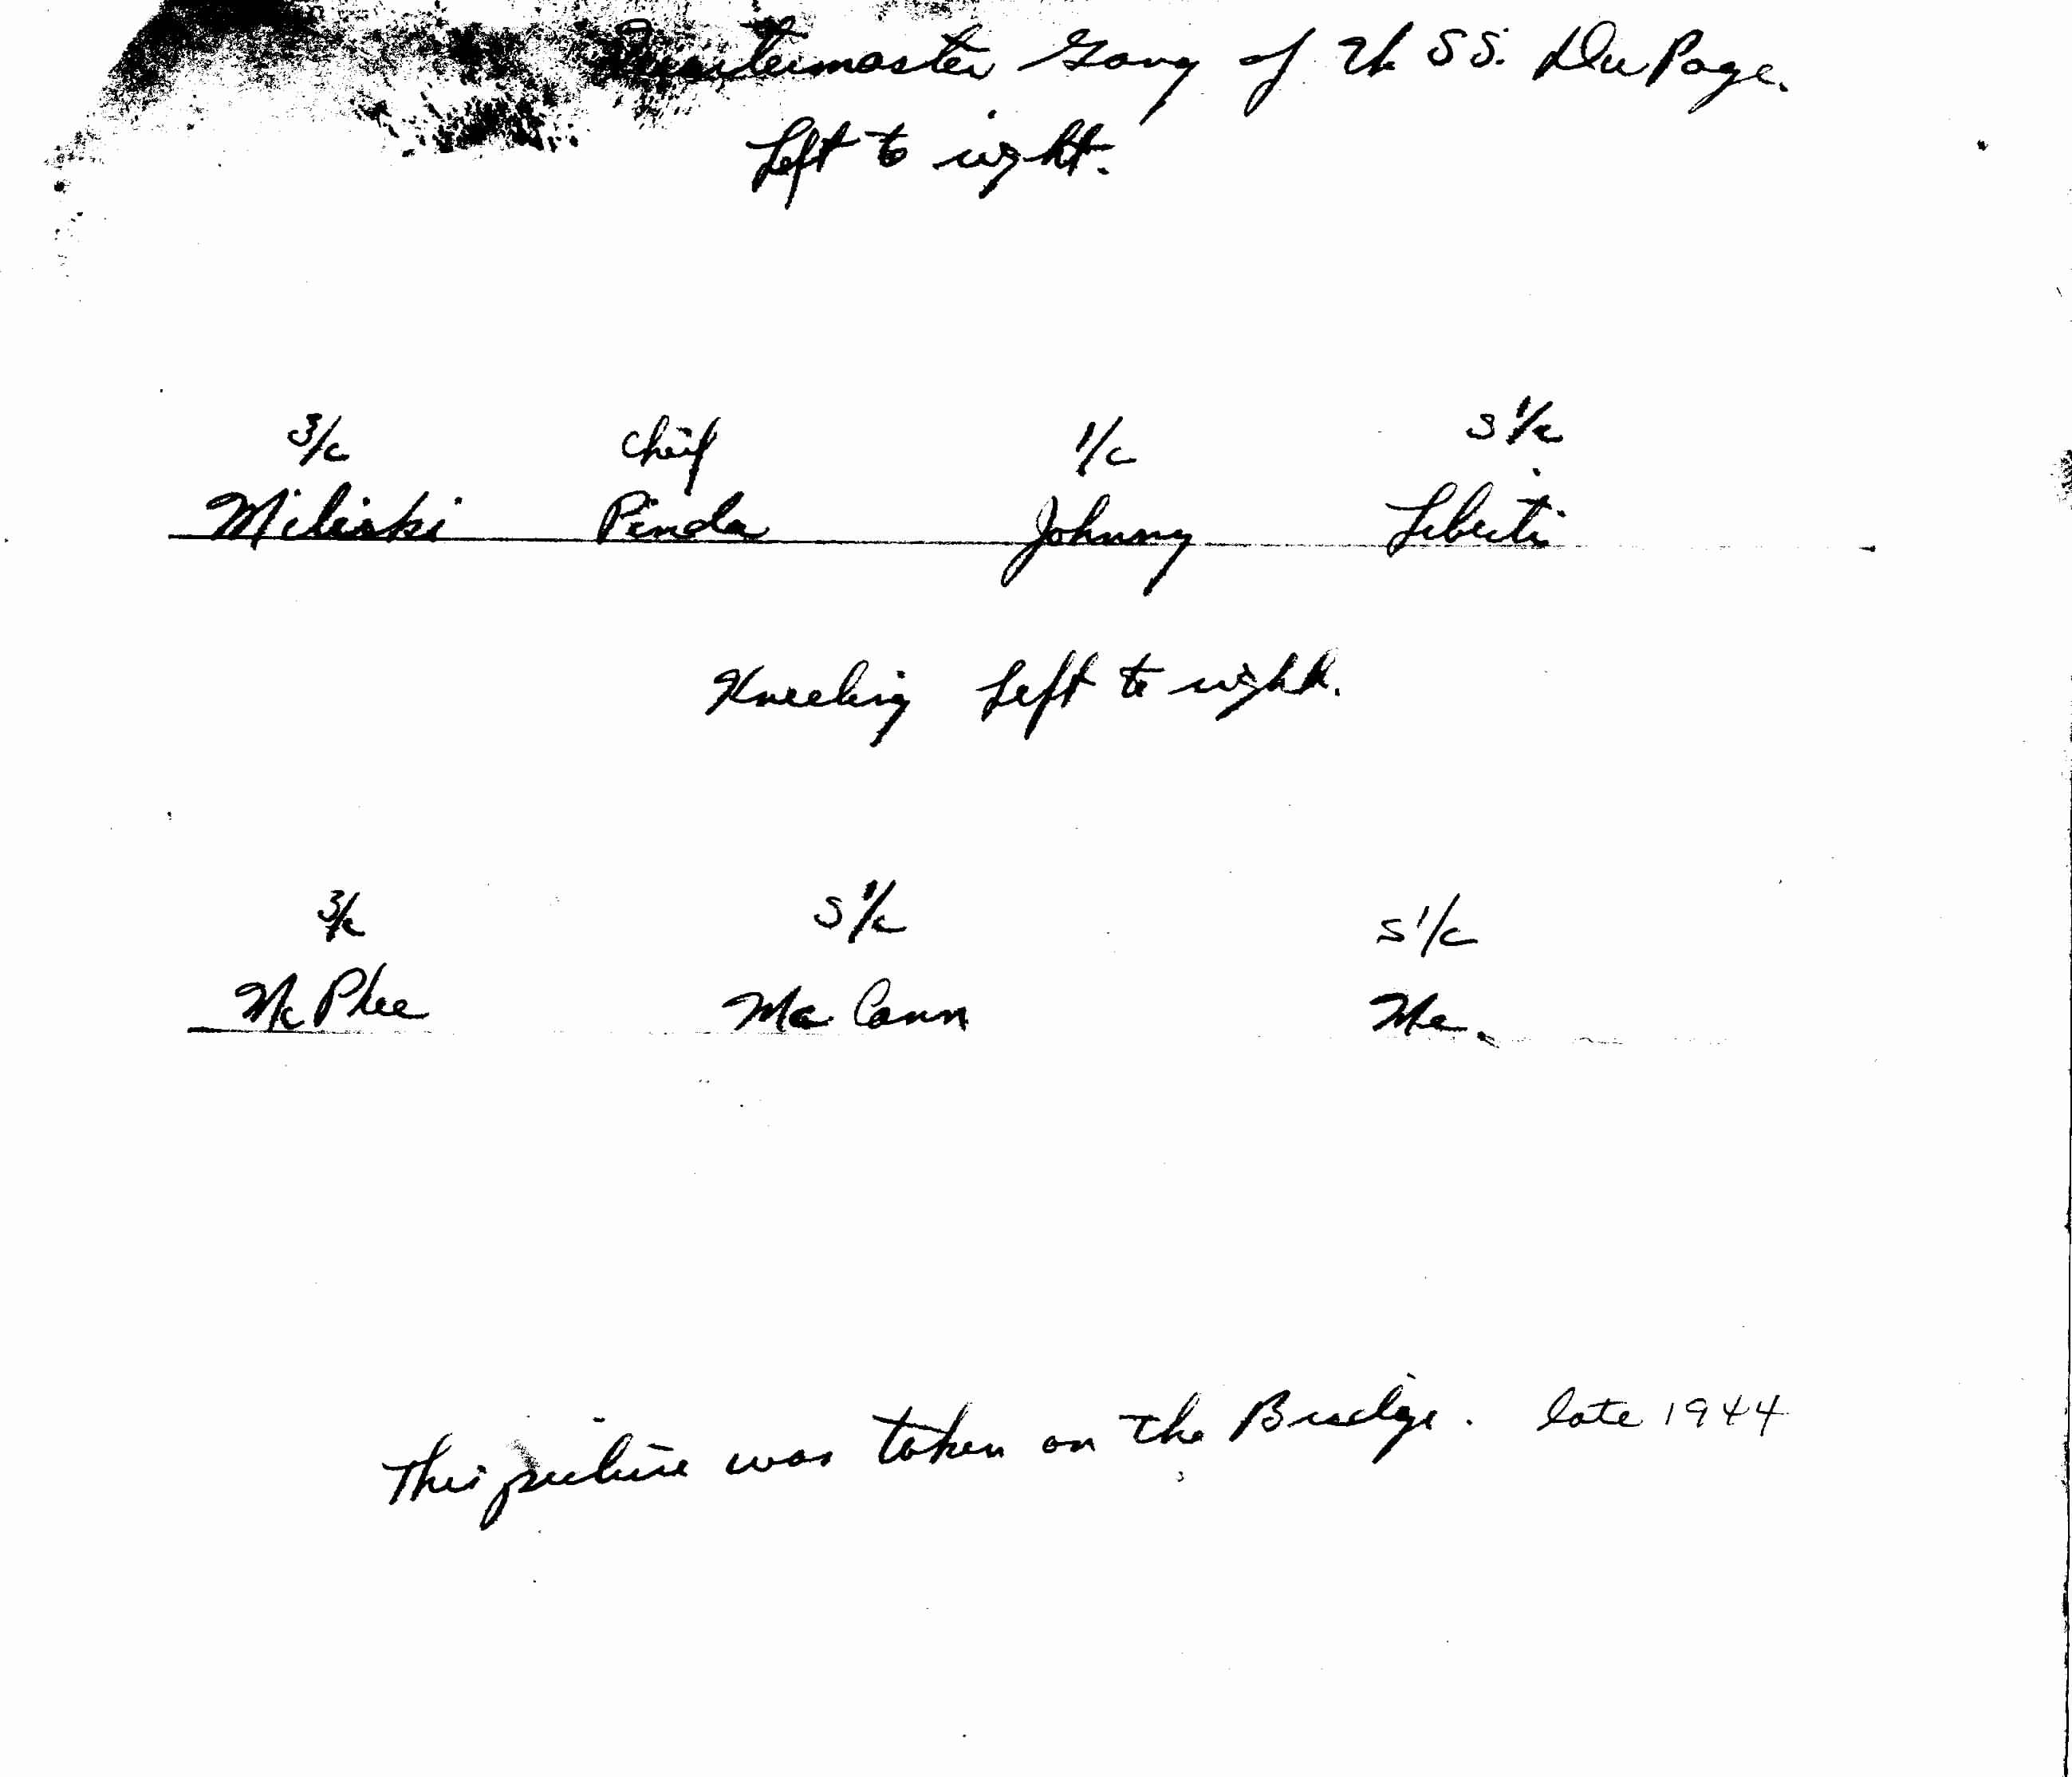 Quartermaster Gang of U. SS. Du Page.
Left to right.
3/c chief 1/c S 1/c
Miliski Pinda Johnny Liberti
Kneeling Left to right.
3/c S 1/c S 1/c
Mc Phee Mc Cann Me.
This picture was taken on the Bridge. late 1944